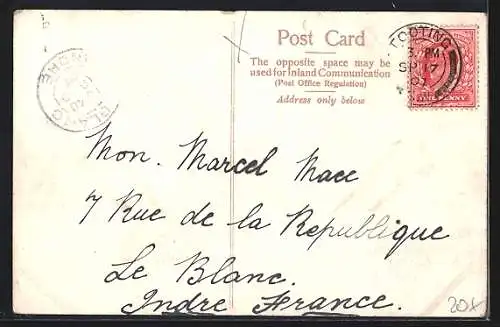 Post Card
The opposite space may be
used for Inland Communication
(Post Office Regulation)
Address only below
TOOTING
3 PM
SP 17
07
ONE PENNY
LE BLANC
INDRE
Mon. Marcel Mace
7 Rue de la Republique
Le Blanc.
Indre France.